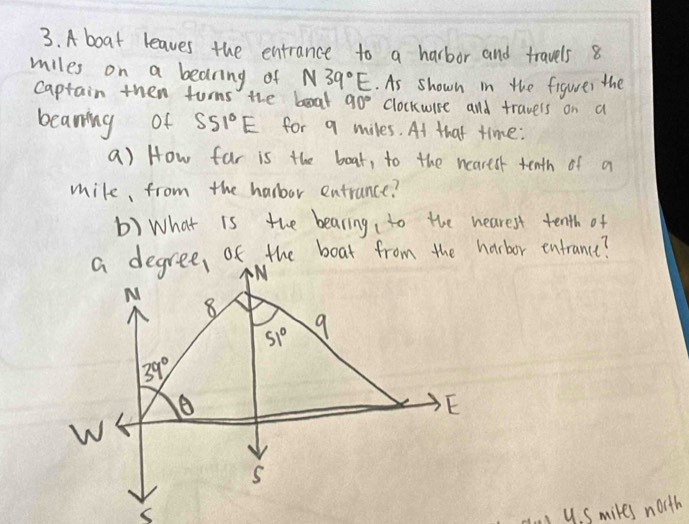 3. A boat leaves the entrance to a harbor and travels 8
miles on a bearing of N 39°E. As shown in the figure, the
captain then turns the boat 90° clockwise and travels on a
bearing of S51°E for 9 miles. At that time:
a) How far is the boat, to the nearest tenth of a
mile, from the harbor entrance?
b) What is the bearing, to the nearest tenth of
a degree, of the boat from the harbor entrance?
N
N
8
9
51°
39°
θ
W
E
S
S
4.5 miles north